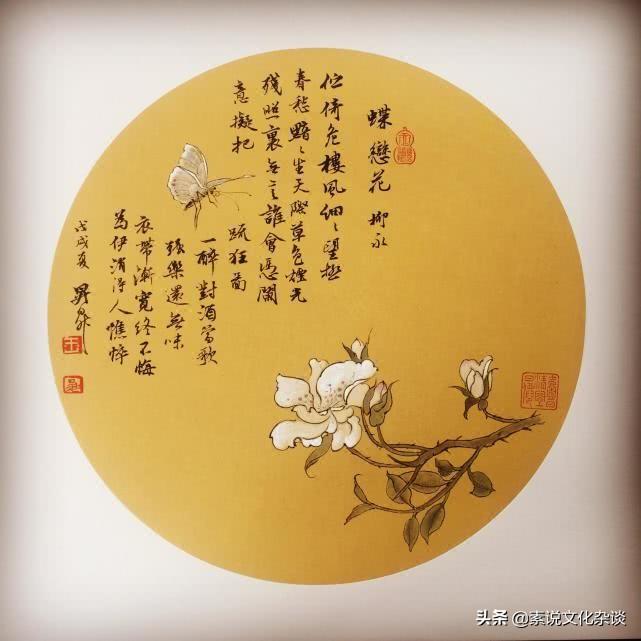 蝶戀花 柳永
伫倚危樓風細〻望極
春愁黯〻生天際草色煙光
殘照裏無言誰會憑闌
意擬把
疏狂圖
一醉對酒當歌
強樂還無味
衣帶漸寬終不悔
為伊消得人憔悴
戊戌夏
头条 @素说文化杂谈